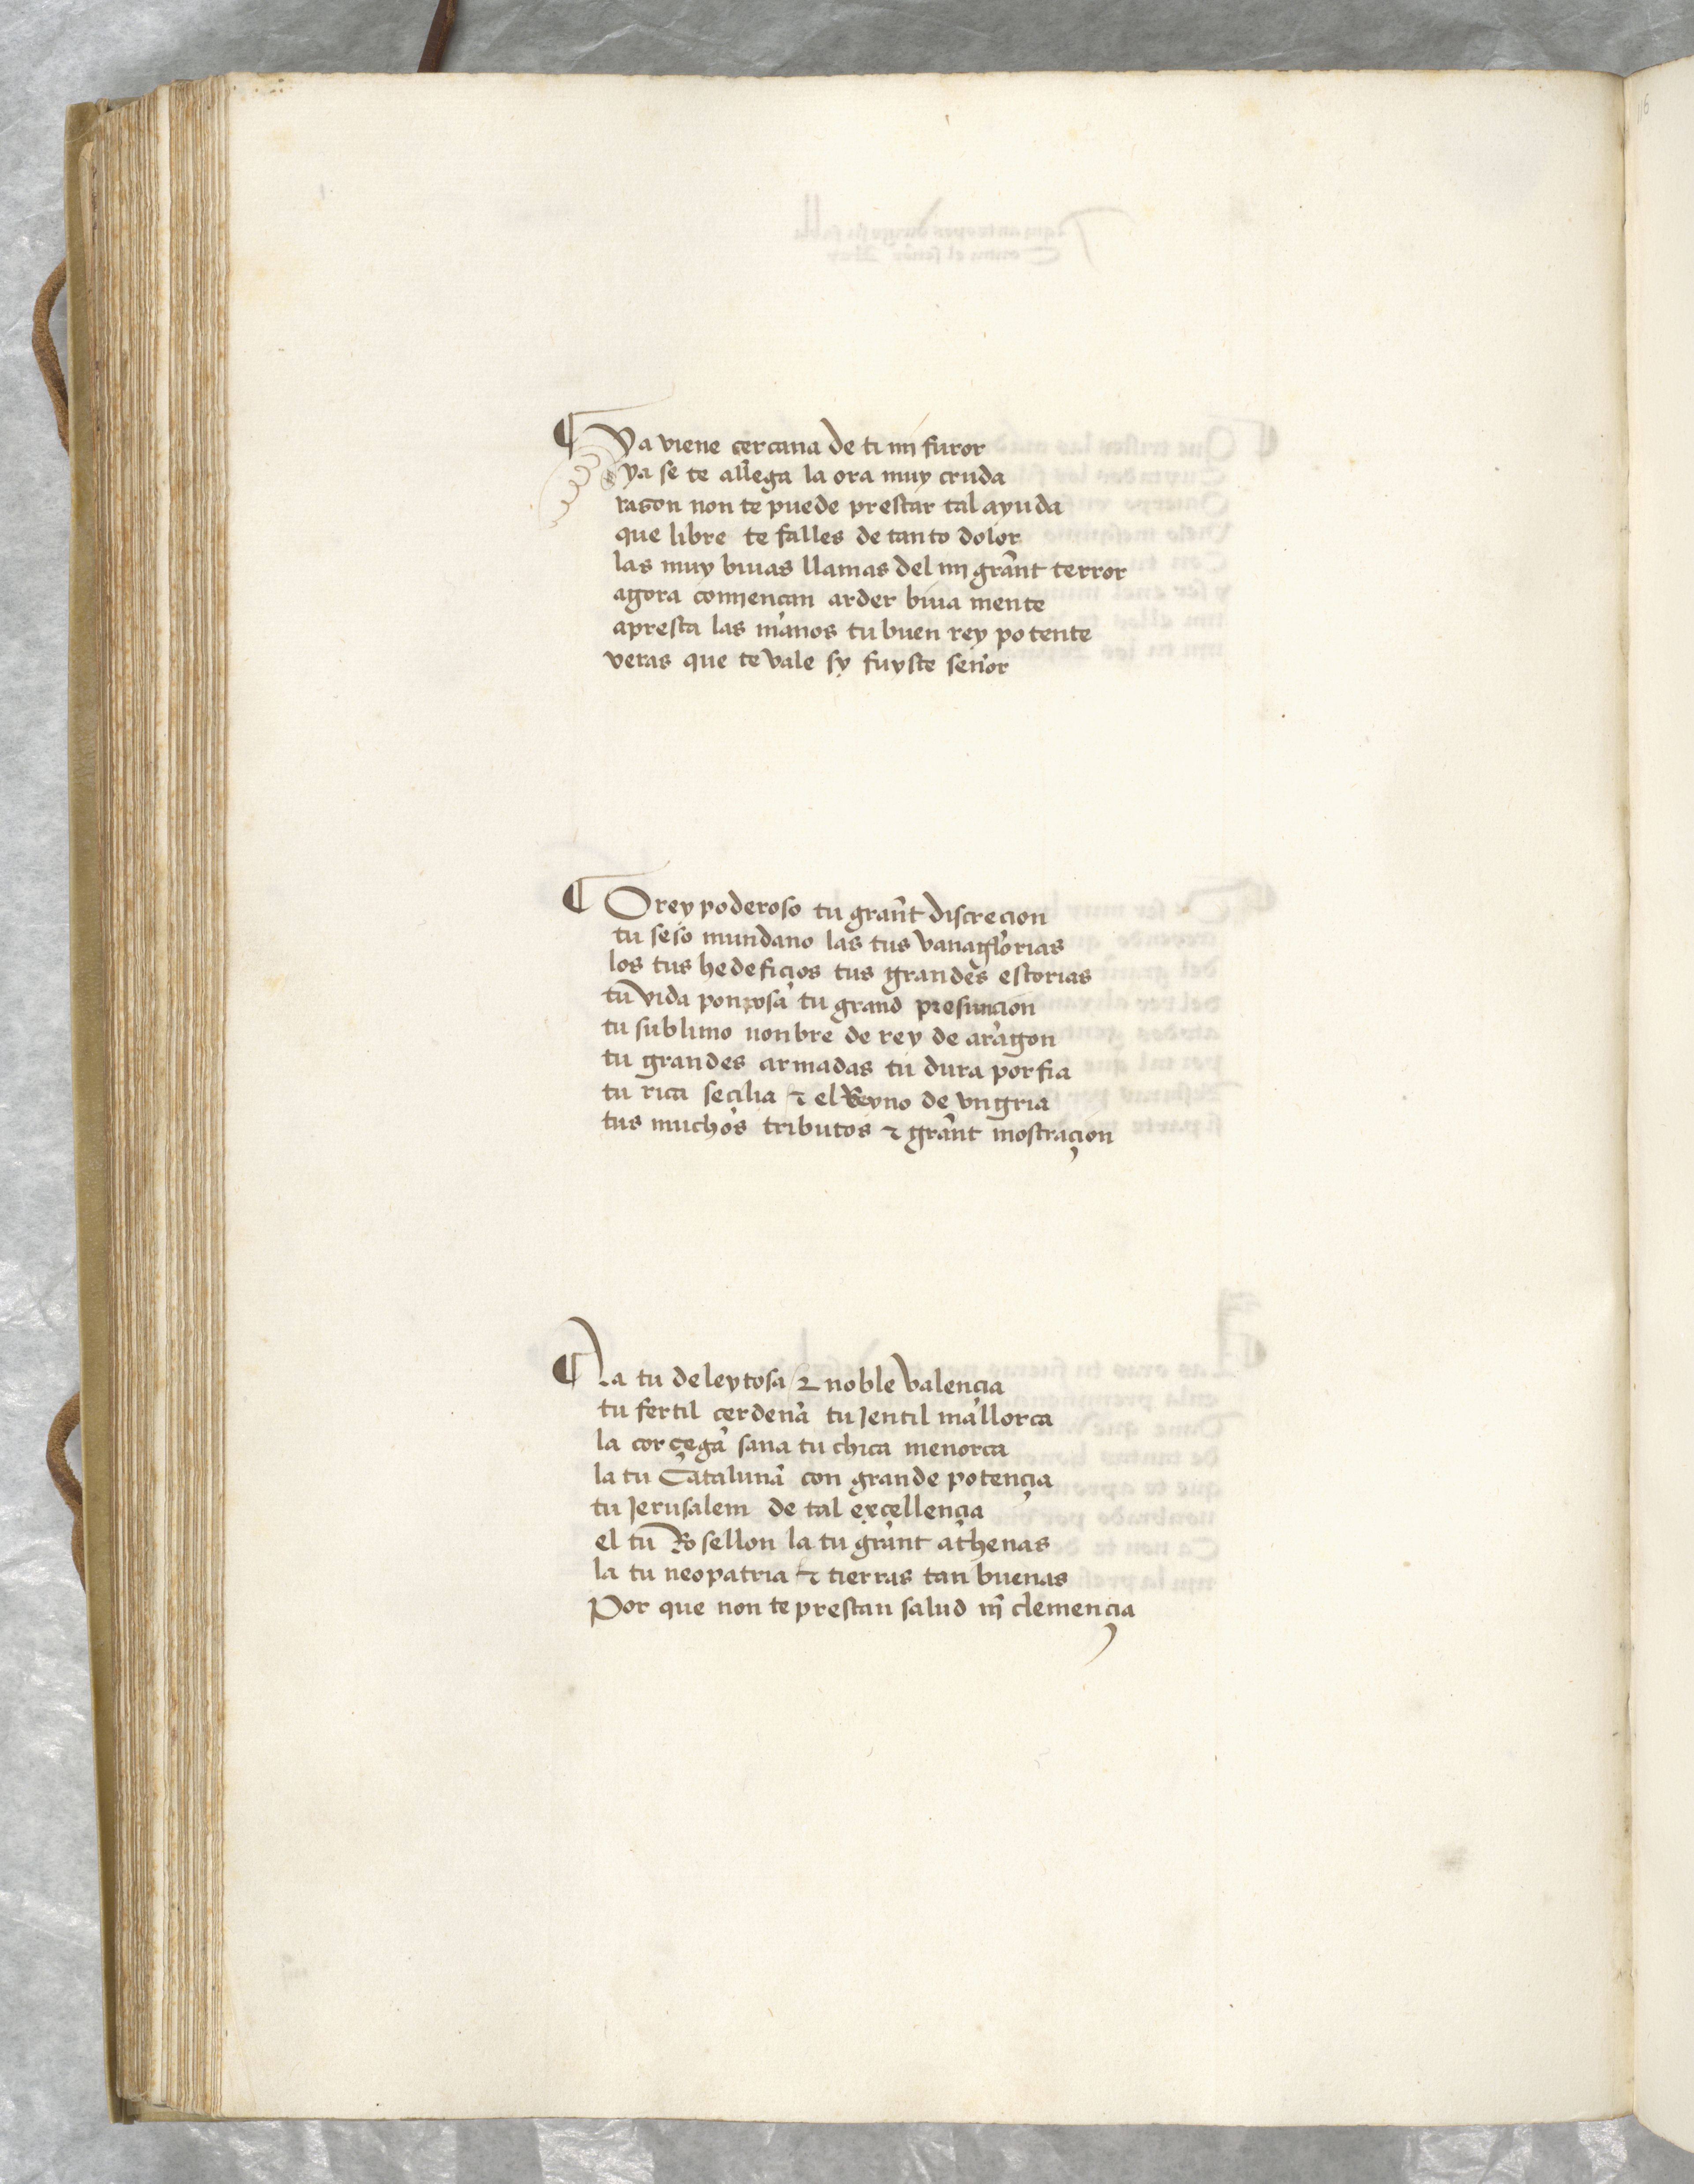 ¶ Ya viene cercana de ti mi furor
ya se te allega la ora muy cruda
rason non te puede prestar tal ayuda
que libre te falles de tanto dolor
las muy biuas llamas del mi grant terror
agora comiençan arder biua mente
apresta las manos tu buen rey potente
veras que te vale sy fuyste señor
¶ O rey poderoso tu grant discrecion
tu seso mundano las tus vanaglorias
los tus hedeficios tus grandes estorias
tu vida ponzosa tu grand presuncion
tu sublimo nonbre de rey de aragon
tu grandes armadas tu dura porfia
tu rica secilia ⁊ el Reyno de vngria
tus muchos tributos ⁊ grant mostraçion
¶ La tu deleytosa ⁊ noble valençia
tu fertil cerdeña tu Jentil mallorca
la corçega sana tu chica menorca
la tu Cataluña con grande potençia
tu Jerusalem de tal exçellençia
el tu Rosellon la tu grant athenas
la tu neopatria ⁊ tierras tan buenas
Por que non te prestan salud ni clemençia
116